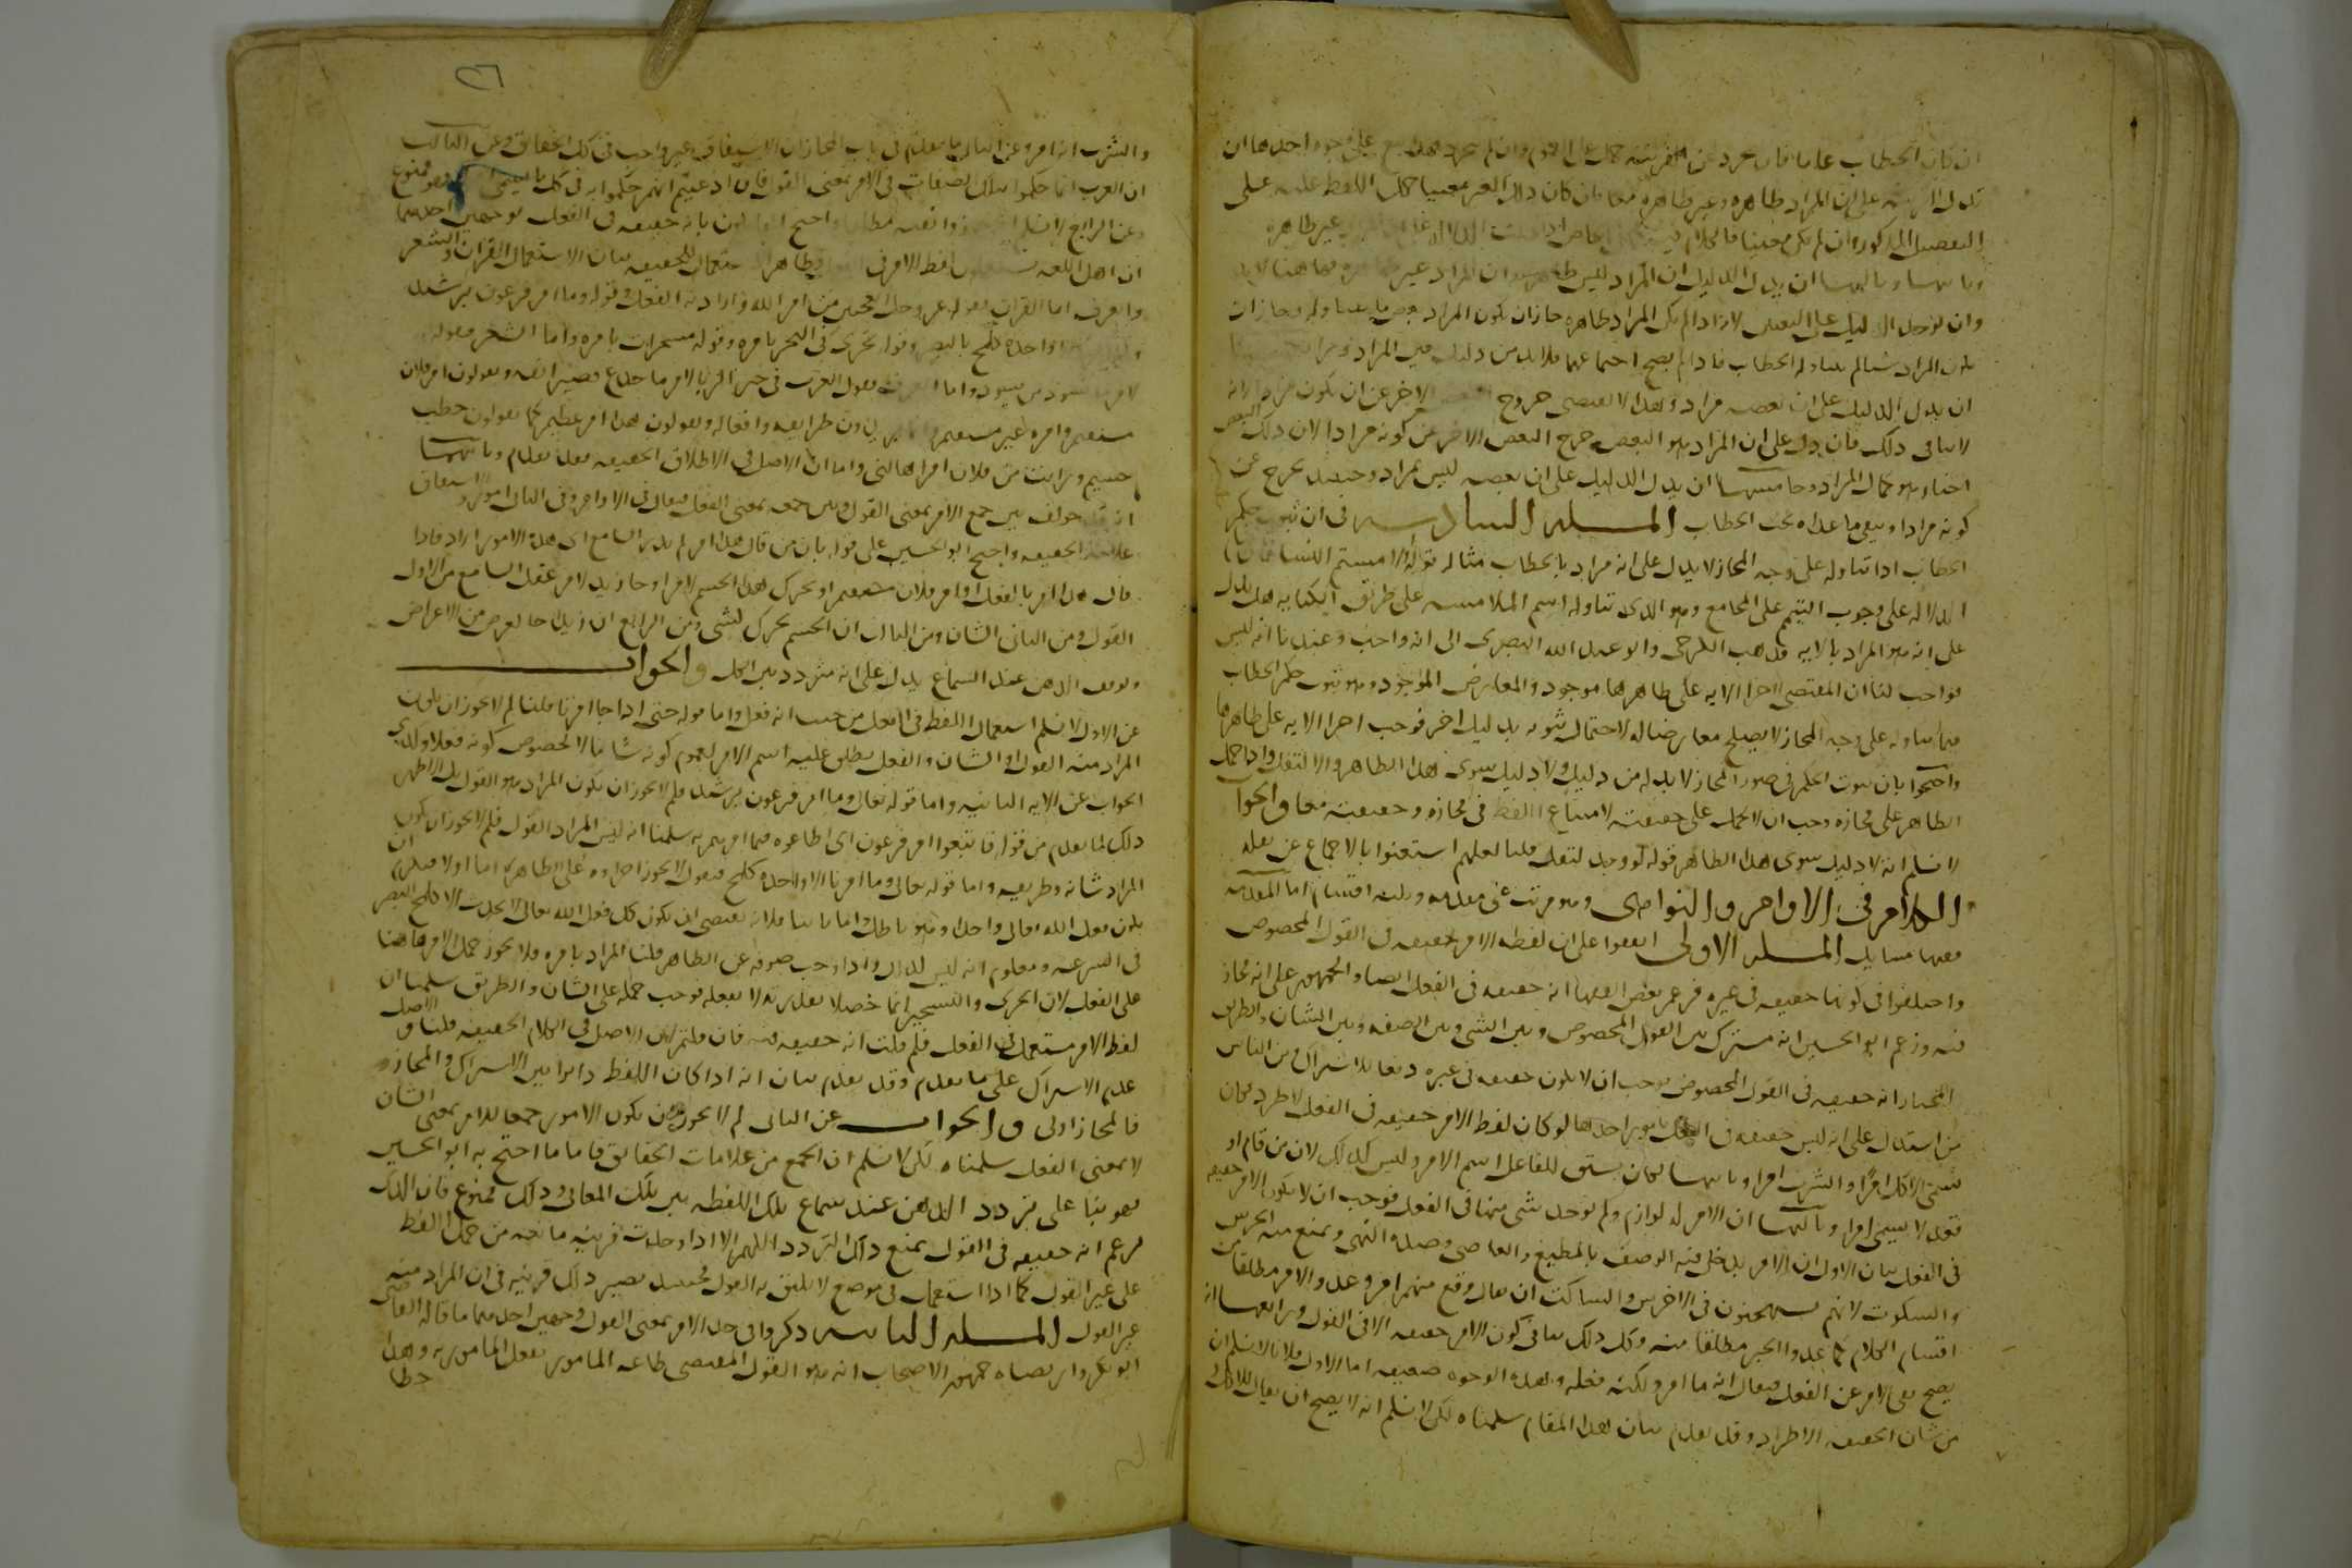 ان كان الخطاب عاما فان تجرد عن القرينه حمل على العموم وان لم تجرد على وجوه احدها ان
تدل القرينه على ان المراد ظاهره وغير ظاهره معا فان كان ذلك الغير معينا حمل اللفظ عليه على
التفصيل المذكور وان لم يكن معينا فالكلام غير ظاهره
وثالثها ان يدل الدليل ان المراد ليس ظاهره ان المراد غير هاهنا لابد
المراد ظاهره جاز ان يكون المراد بعض ما يتناوله ومجاز ان
يكون المراد شيا لم يتناوله الخطاب فاذا لم يصح اجتماعهما فلا بد من دليل يعين المراد
ان يدل الدليل على ان بعضه مراد وهذا لا يقتضى خروج الاخر عن ان يكون مرادا لانه
لا ينافى ذلك فان دل على ان المراد هو البعض خرج البعض الاخر من كونه مرادا لان ذلك البعض
هو كمال المراد وخامسها ان يدل الدليل على ان بعضه ليس بمراد وحينئذ يخرج عن
كونه مرادا ويبقى ما عداه تحت الخطاب المسله السادسه فى ان ثبوت حكم
الخطاب اذا تناوله على وجه المجاز لا يدل على انه مراد بالخطاب مثاله قوله او لامستم النساء
الدلاله على وجوب التيمم على المجامع وهو الذى تناوله اسم الملامسه على طريق الكنايه هل يدل
على انه هو المراد بالايه فذهب الكرخى وابو عبد الله البصرى الى انه واجب وعندنا انه ليس
بواجب لنا ان المقتضى لاجرا الايه على ظاهرها موجود والمعارض الموجود وهو ثبوت حكم الخطاب
فيما تناوله على وجه المجاز لا يصلح معارضا له لاحتمال ثبوته بدليل اخر فوجب اجرا الايه على ظاهرها
واحتجوا بان ثبوت الحكم فى صور المجاز لا بد له من دليل ولا دليل سوى هذا الظاهر والا لنقل واذا حمل
الظاهر على مجازه وجب ان لا يحمل على حقيقته لامتناع اللفظ فى مجازه وحقيقته معا والجواب
لا نسلم انه لا دليل سوى هذا الظاهر قوله لو وجد لنقل قلنا لعلهم استغنوا بالاجماع عن نقله
الكلام فى الاوامر والنواهى وهو مرتب على مقدمه وثلثه اقسام اما المقدمه
ففيها مسايل المسله الاولى اتفقوا على ان لفظه الامر حقيقه فى القول المخصوص
واختلفوا فى كونها حقيقه فى غيره فزعم بعض الفقها انه حقيقه فى الفعل ايضا والجمهور على انه مجاز
فيه وزعم ابو الحسين انه مشترك بين القول المخصوص وبين الشى وبين الصفه وبين الشان والطريق
المختار انه حقيقه فى القول المخصوص فوجب ان لا يكون حقيقه فى غيره دفعا للاشتراك ومن الناس
من استدل على انه ليس حقيقه فى الفعل بامور احدها لو كان لفظ الامر حقيقه فى الفعل لاطرد فكان
يسمى الاكل امرا والشرب امرا وثانيها لكان يشتق للفاعل اسم الامر وليس كذلك لان من قام او
قعد لا يسمى امرا وثالثها ان الامر له لوازم ولم يوجد شى منها فى الفعل فوجب ان لا يكون الامر حقيقه
فى الفعل بيان الاول ان الامر يدخل فيه الوصف بالمطيع والعاصى وضده النهى ويمنع منه الخرس
والسكوت لانهم يستهجنون فى الاخرس والساكت ان يقال وقع منهم امر وعدوا الامر مطلقا من
اقسام الكلام كما عدوا الخبر مطلقا منه وكل ذلك ينافى كون الامر حقيقه الا فى القول ورابعها انه
يصح نفى الامر عن الفعل فيقال انه ما امر ولكنه فعله وهذه الوجوه ضعيفه اما الاول فلانا لا نسلم ان
من شان الحقيقه الاطراد وقد تقدم بيان هذا المقام سلمناه لكن لا نسلم انه لا يصح ان يقال للاكل
والشرب انه امر وعن الثانى ما تقدم فى باب المجاز ان الاشتقاق غير واجب فى كل الحقايق وعن الثالث
ان العرب انما حكموا بتلك الصفات فى الامر بمعنى القول فان ادعيتم انهم حكموا به فى كل ما يسمى فهو ممنوع
وعن الرابع لا نسلم مطلقا واحتج القايلون بانه حقيقه فى الفعل بوجهين احدهما
ان اهل اللغه يستعملون لفظ الامر فى الفعل وظاهر الاستعمال الحقيقه بيان الاستعمال القران والشعر
والعرف اما القران فقوله عز وجل اتعجبين من امر الله واراد به الفعل وقوله وما امر فرعون برشيد
واحده كلمح بالبصر وقوله تجرى فى البحر بامره وقوله مسخرات بامره واما الشعر فقوله
لامر ما يسود من يسود واما العرف فقول العرب فى خبر الزبا لامر ما جدع قصير انفه ويقولون امر فلان
مستقيم وامره غير مستقيم ويريدون طرايقه وافعاله ويقولون هذا امر عظيم كما يقولون خطب
جسيم ورايت من فلان امرا هالنى واما ان الاصل فى الاطلاق الحقيقه فقد تقدم وثانيهما
انه قد خولف بين جمع الامر بمعنى القول وبين جمعه بمعنى الفعل فيقال فى الاول اوامر وفى الثانى امور
علامه الحقيقه واحتج ابو الحسين على قوله بان من قال هذا امر لم يدر السامع اى هذه الامور اراد فاذا
قال هذا امر بالفعل او امر فلان مستقيم او تحرك هذا الجسم لامر وجا زيد لامر عقل السامع من الاول
القول ومن الثانى الشان ومن الثالث ان الجسم تحرك لشى ومن الرابع ان زيدا جا لغرض من الاغراض
وتوقف الذهن عند السماع يدل على انه متردد بين الكل والجواب
عن الاول لا نسلم استعمال اللفظ فى الفعل من حيث انه فعل واما قوله حتى اذا جا امرنا قلنا لم لا يجوز ان يكون
المراد منه القول او الشان والفعل يطلق عليه اسم الامر لعموم كونه شانا لا لخصوص كونه فعلا وكذى
الجواب عن الايه الثانيه واما قوله تعالى وما امر فرعون برشيد فلم لا يجوز ان يكون المراد هو القول بل الاظهر
ذلك لما تقدم من قوله فاتبعوا امر فرعون اى اطاعوه فيما امرهم به سلمنا انه ليس المراد القول فلم لا يجوز ان يكون
المراد شانه وطريقه واما قوله تعالى وما امرنا الا واحده كلمح فنقول لا يجوز اجراوه على الظاهر اما اولا فيلزم ان
يكون فعل الله تعالى واحدا وهو باطل واما ثانيا فلانه يقتضى ان يكون كل فعل الله تعالى لا يحدث الا كلمح البصر
فى السرعه ومعلوم انه ليس كذلك واذا وجب صرفه عن الظاهر قلنا المراد بامره فلا يجوز حمل الامر هاهنا
على الفعل لان الجرى والتسخير انما حصلا بقدرته لا بفعله فوجب حمله على الشان والطريق سلمنا ان
لفظ الامر مستعمل فى الفعل فلم قلت انه حقيقه فيه فان قلتم لان الاصل فى الكلام الحقيقه قلنا والاصل
عدم الاشتراك على ما تقدم وقد تقدم بيان انه اذا كان اللفظ دايرا بين الاشتراك والمجاز
فالمجاز اولى والجواب عن الثانى لم لا يجوز ان يكون الامور جمعا للامر بمعنى الشان
لا بمعنى الفعل سلمناه لكن لا نسلم ان الجمع من علامات الحقايق فاما ما احتج به ابو الحسين
فهو بنا على تردد الذهن عند سماع تلك اللفظه بين تلك المعانى وذلك ممنوع فان الذى
يزعم انه حقيقه فى القول يمنع ذلك التردد اللهم الا اذا وجدت قرينه مانعه من حمل اللفظ
على غير القول كما اذا استعمل فى موضع لا يليق به القول فحينئذ يصير ذلك قرينه فى ان المراد منه
غير القول المسله الثانيه ذكروا فى حد الامر بمعنى القول وجهين احدهما ما قاله القاضى
ابو بكر وارتضاه جمهور الاصحاب انه هو القول المقتضى طاعه المامور بفعل المامور به وهذا
خطا